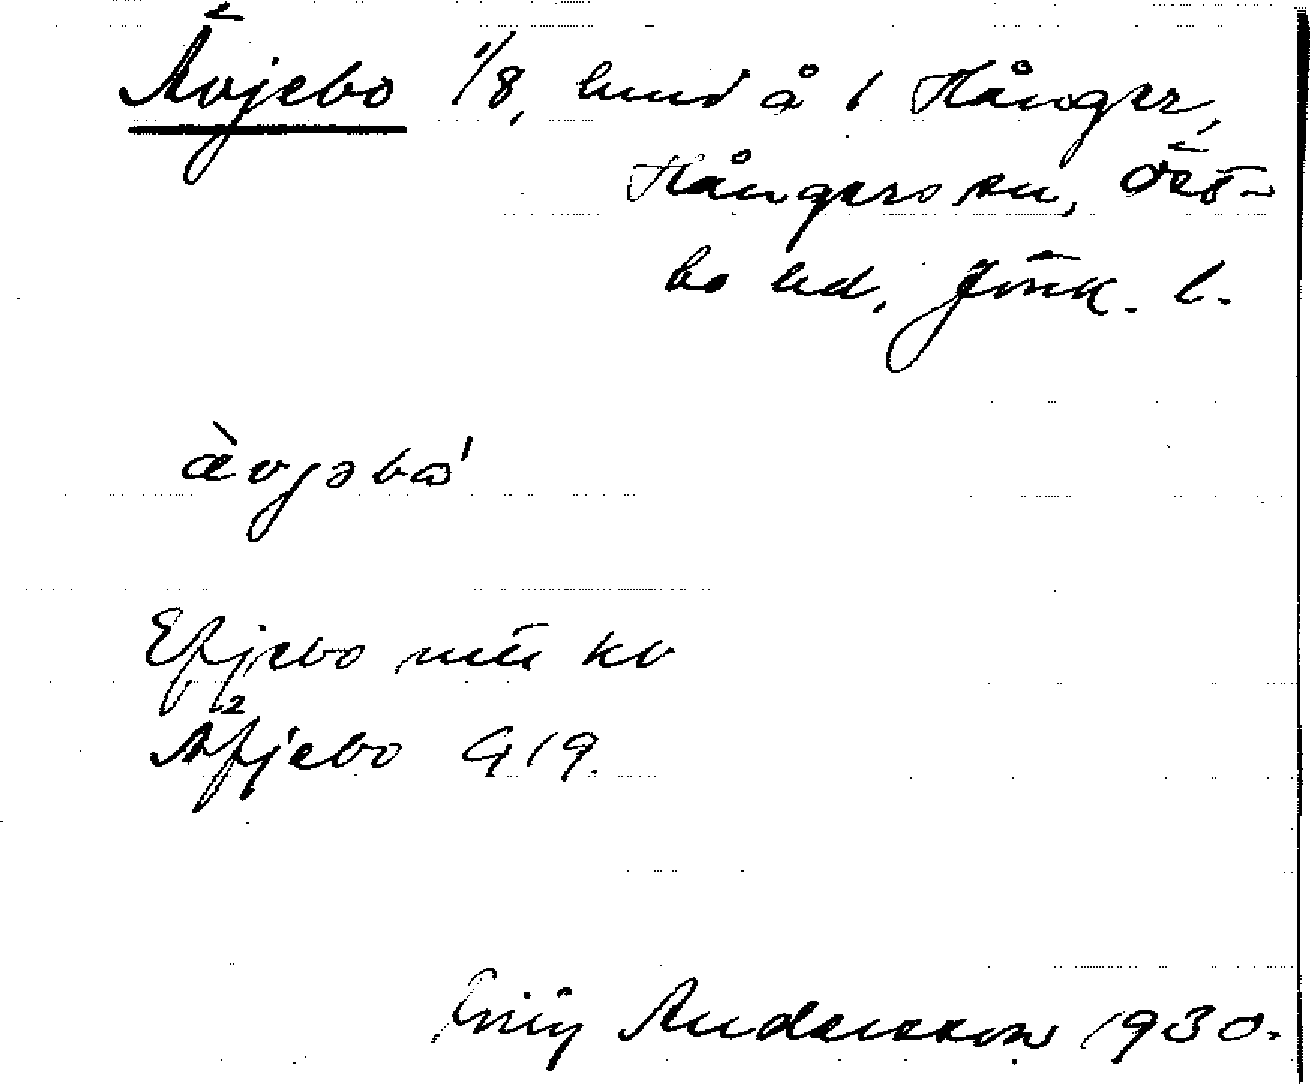 Ävjebo 1/8, hmd å 1 Hånger,
Hångers sn, Öst-
bo hd, Jönk. l.
ä̀vjəbo'
Efjebo
Äfjebo G 19.
Andersson 1930.